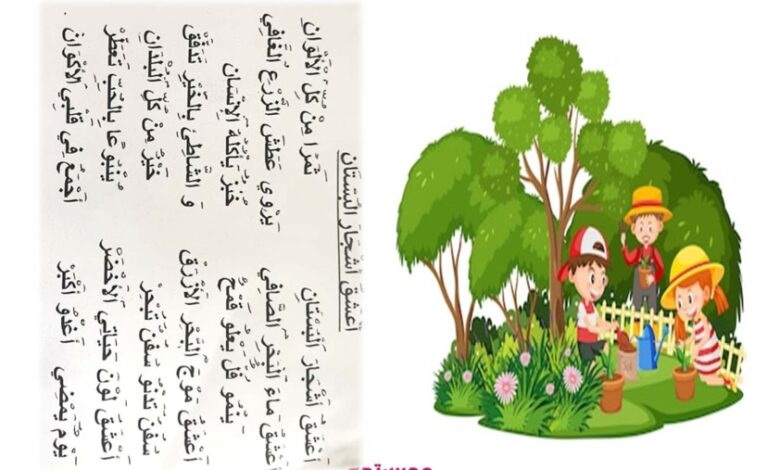 أَعْشَقُ أَشْجَارَ الْبُسْتَان
أَعْشَقُ أَشْجَارَ الْبُسْتَانِ ثَمَرًا مِنْ كُلِّ الْأَلْوَانِ
أَعْشَقُ مَاءَ النَّهْرِ الصَّافِي يَرْوِي عَطَشَ الزَّرْعِ الْغَافِي
يَنْمُو فُلٌّ يَعْلُو قَمْحٌ خُبْزٌ يَأْكُلُهُ الْإِنْسَان
أَعْشَقُ مَوْجَ الْبَحْرِ الْأَزْرَقْ وَ الشَّاطِئَ بِالْخَيْرِ تَدَفَّقْ
سُفُنٌ تَدْنُو سُفُنٌ تُبْحِرُ خَيْرٌ مِنْ كُلِّ الْبُلْدَانِ
أَعْشَقُ لَوْنَ حَيَاتِي الْأَخْضَرْ يَنْبُوعًا بِالْحُبِّ تَعَطَّرْ
يَوْمٌ يَمْضِي أَغْدُو أَكْبَرْ أَجْمَعُ فِي قَلْبِي الْأَكْوَانْ